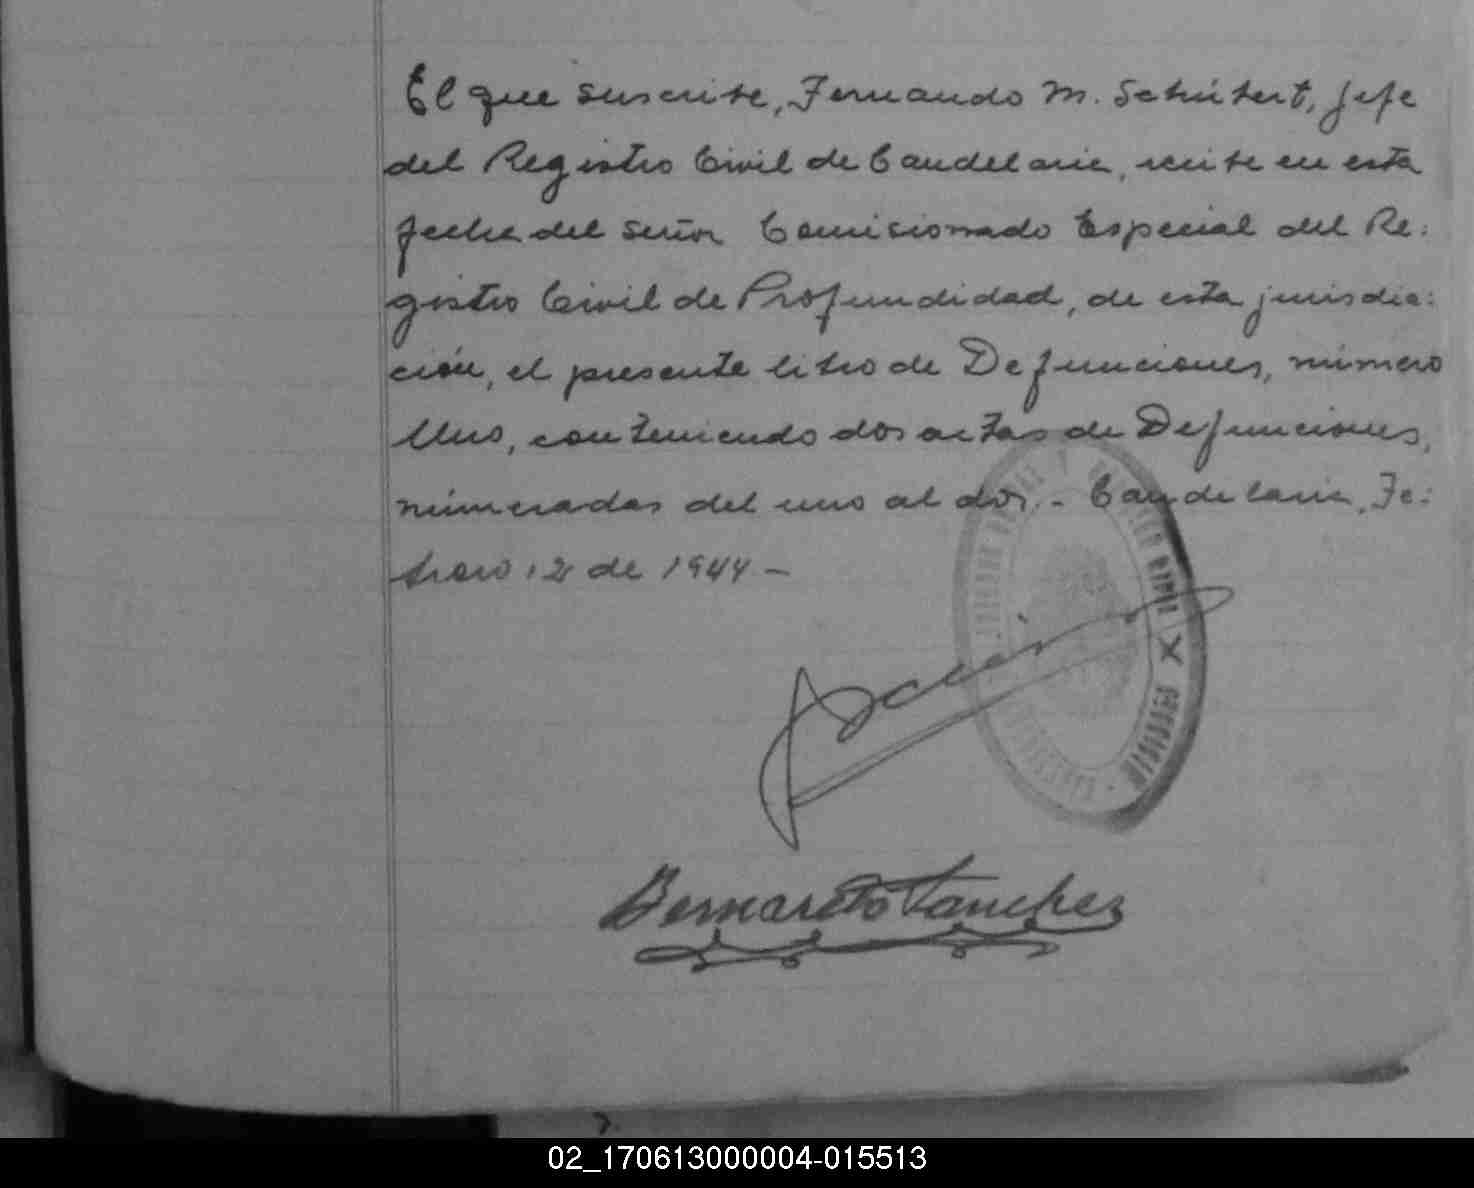 El que suscribe, Fernando M. Schubert, jefe
del Registro Civil de Candelaria, recibe en esta
fecha del señor Comisionado Especial del Re-
gistro Civil de Profundidad, de esta jurisdic-
ción, el presente libro de Defunciones, número
Uno, conteniendo dos actas de Defunciones,
numeradas del uno al dos.- Candelaria, Fe-
brero 12 de 1944 -
Sanchez
02_170613000004-015513